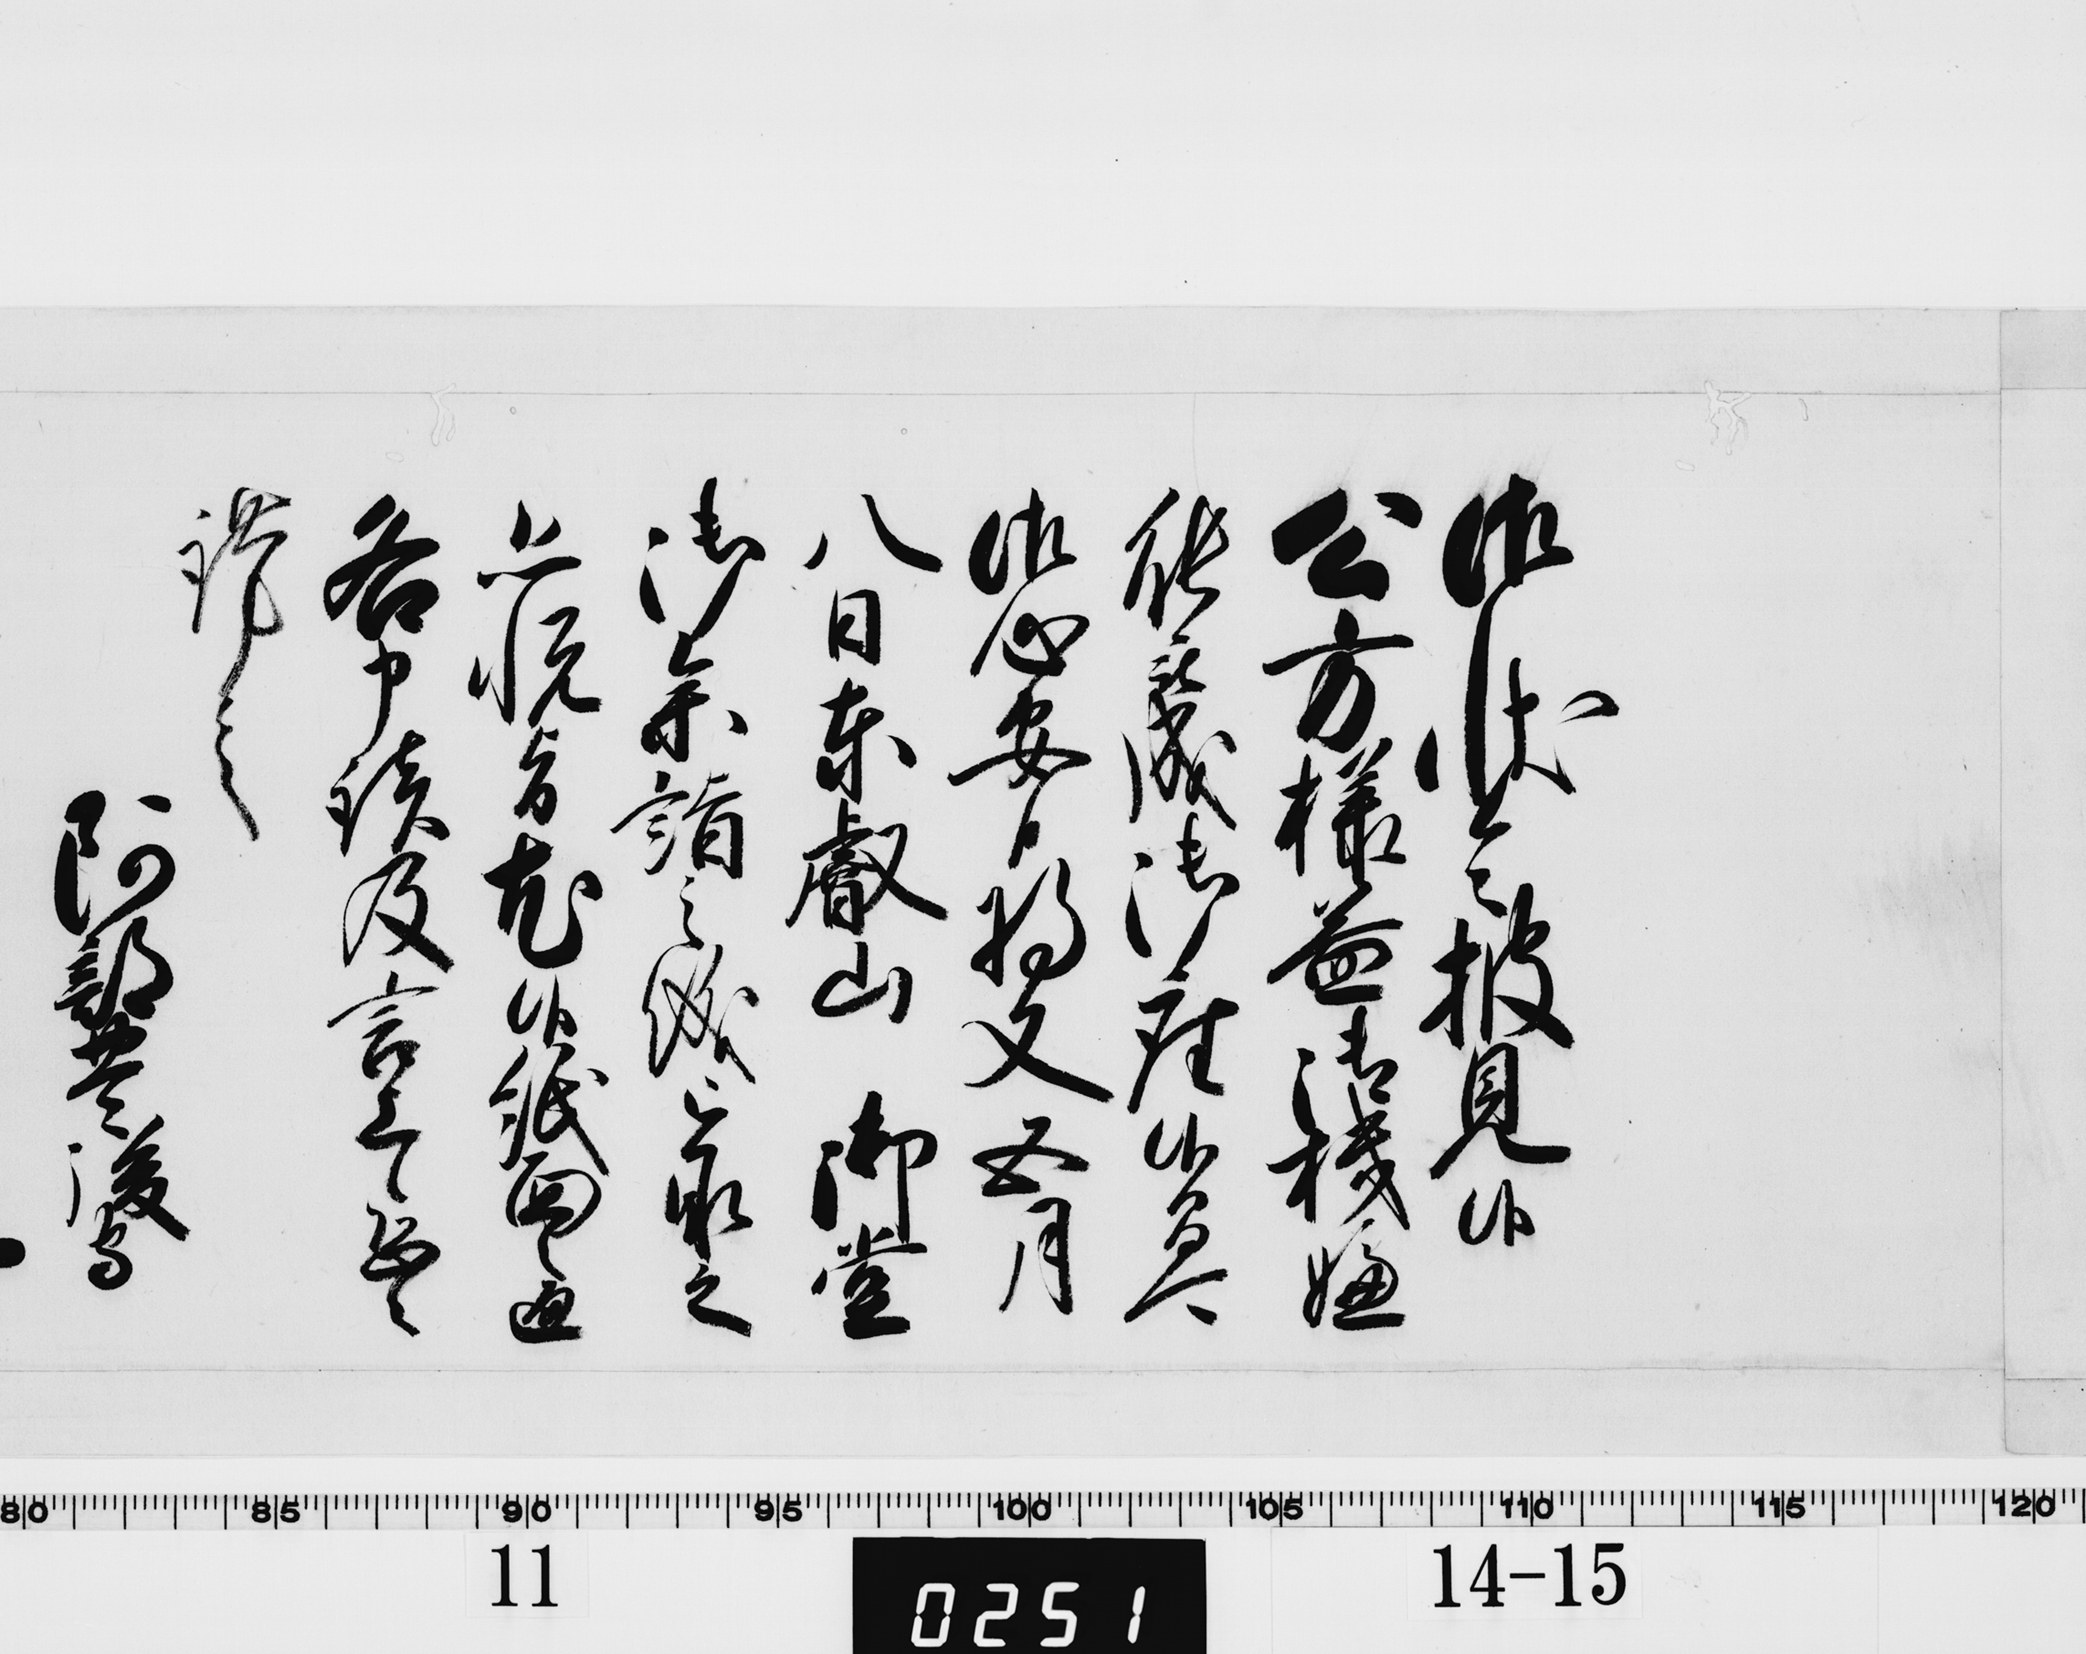 御状令披見候
公方様益御機嫌
能被成御座候
御心安将又五月
八日東叡山 御堂
御参詣之儀被承之
恐悦旨尤候紙面之通
各申談及言上候恐々
謹言
阿部豊後守
80 85 90 95 100 105 110 115 120
11 0251 14-15